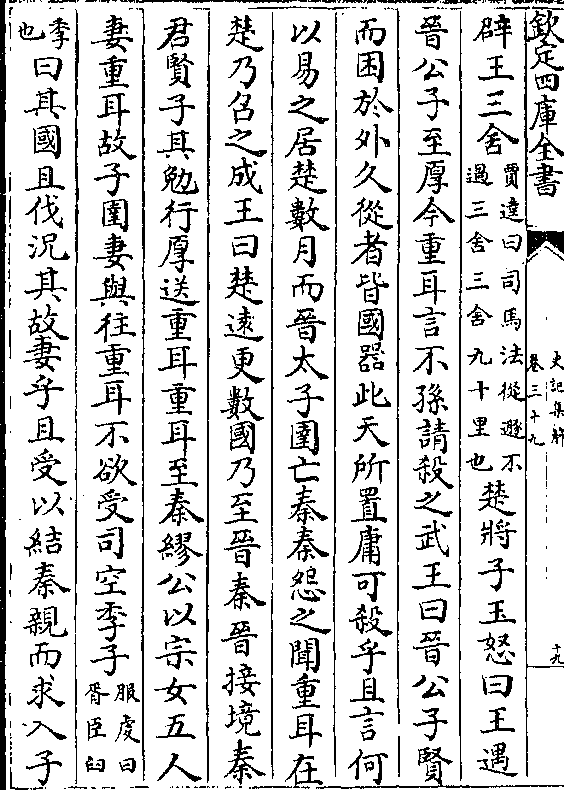 欽定四庫全書
史記集解
卷三十九
十九
辟王三舍賈逵曰司馬法從遯不過三舍三舍九十里也楚將子玉怒曰王遇
晉公子至厚今重耳言不孫請殺之武王曰晉公子賢
而困於外久從者皆國器此天所置庸可殺乎且言何
以易之居楚數月而晉太子圉亡秦秦怨之聞重耳在
楚乃召之成王曰楚遠更數國乃至晉秦晉接境秦
君賢子其勉行厚送重耳重耳至秦繆公以宗女五人
妻重耳故子圉妻與往重耳不欲受司空季子服虔曰胥臣臼
季也曰其國且伐況其故妻乎且受以結秦親而求入子